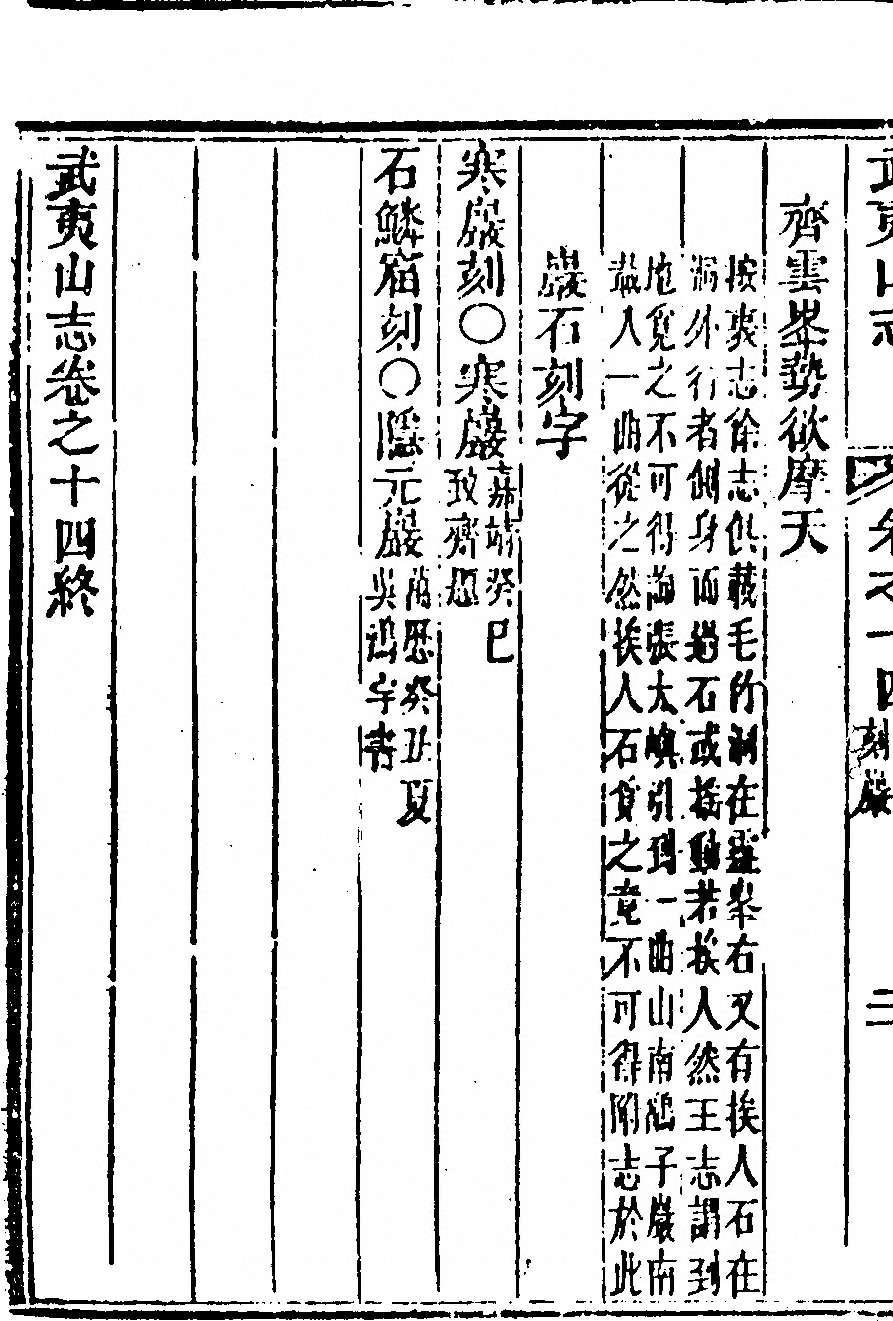 武夷山志
卷之十四
刻巖
二
齊雲峯勢欲摩天
按衷志徐志俱載毛竹洞在疊峯右又有挨人石在
洞外行者側身而過石或搖動若挨人然王志謂到
地覓之不可得詢張太嶼引到一曲山南鷂子巖南
叢人一曲從之然挨人石質之竟不可得附志於此
巖石刻字
寒巖刻〇寒巖嘉靖癸巳
致齋題
石鱗窟刻〇隱元巖萬曆癸丑夏
吳鴻宇書
武夷山志卷之十四終